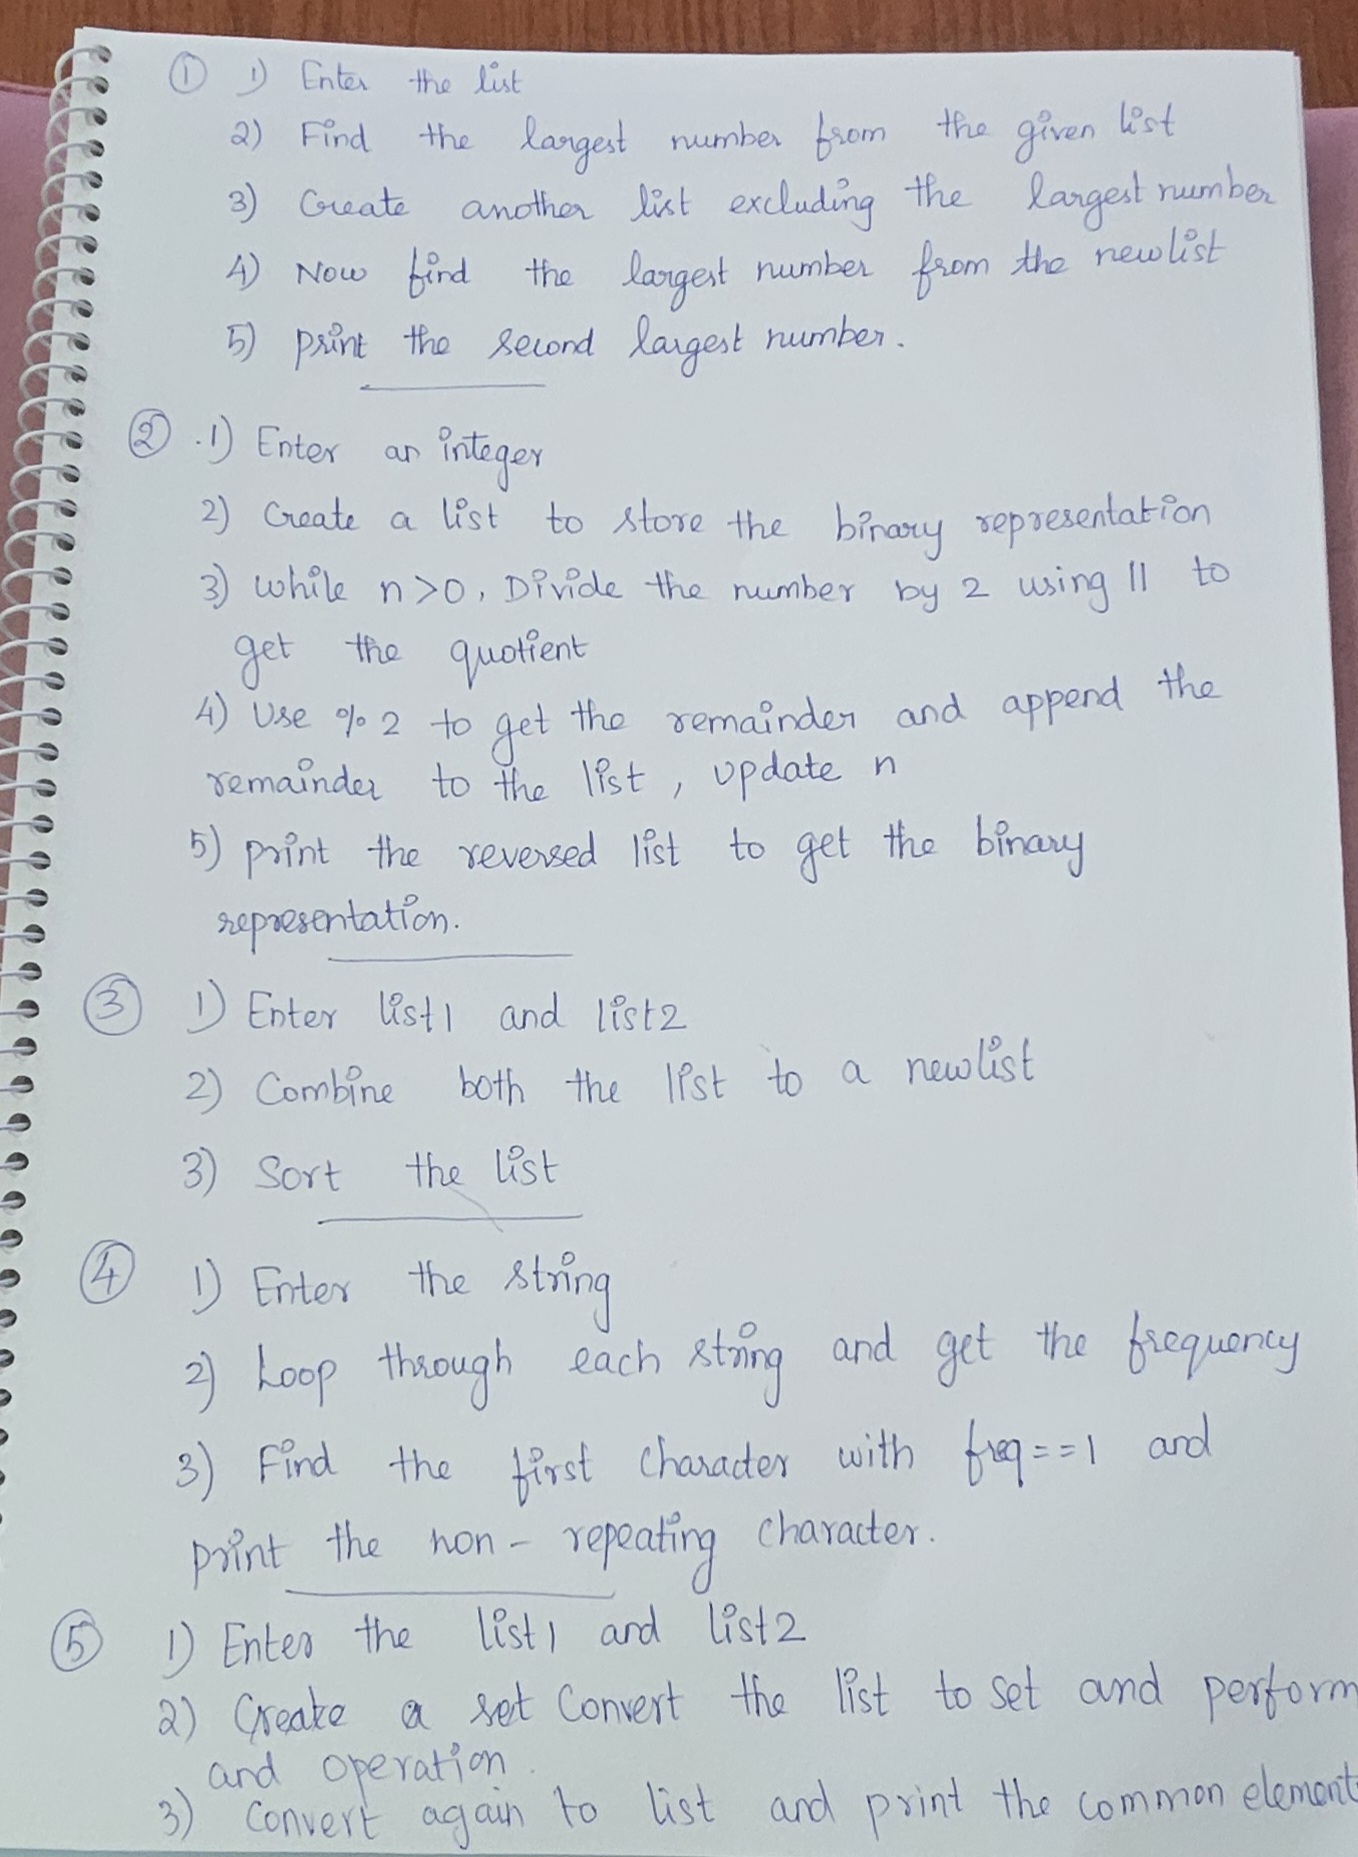 ① 1) Enter the list
2) Find the largest number from the given list
3) Create another list excluding the largest number
4) Now find the largest number from the new list
5) print the second largest number.
② .1) Enter an integer
2) Create a list to store the binary representation
3) while n>0, Divide the number by 2 using // to
get the quotient
4) Use % 2 to get the remainder and append the
remainder to the list, update n
5) print the reversed list to get the binary
representation.
③ 1) Enter list1 and list2
2) Combine both the list to a newlist
3) Sort the list
④ 1) Enter the string
2) Loop through each string and get the frequency
3) Find the first character with freq==1 and
print the non-repeating character.
⑤ 1) Enter the list1 and list2
2) Create a set Convert the list to set and perform
and operation.
3) Convert again to list and print the common element